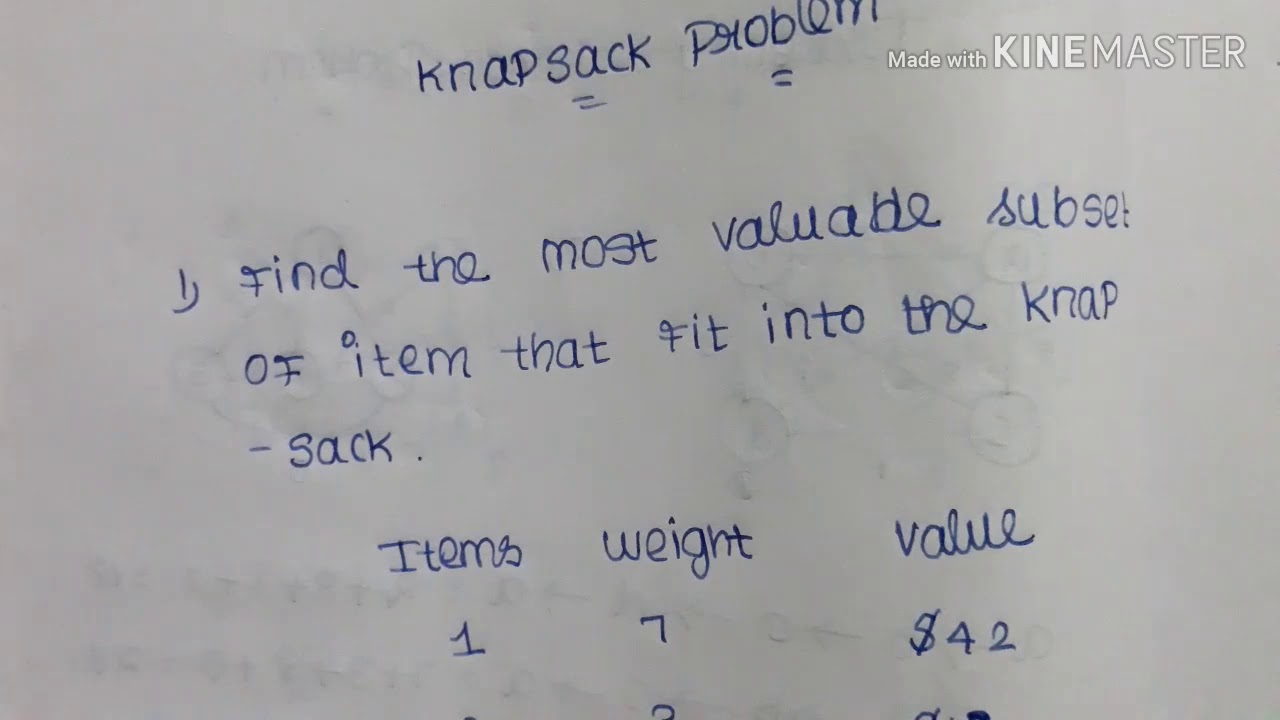 Knapsack Problem
Made with KINEMASTER
1) Find the most valuable subset
of item that fit into the knap
- sack.
Items weight value
1 7 $42